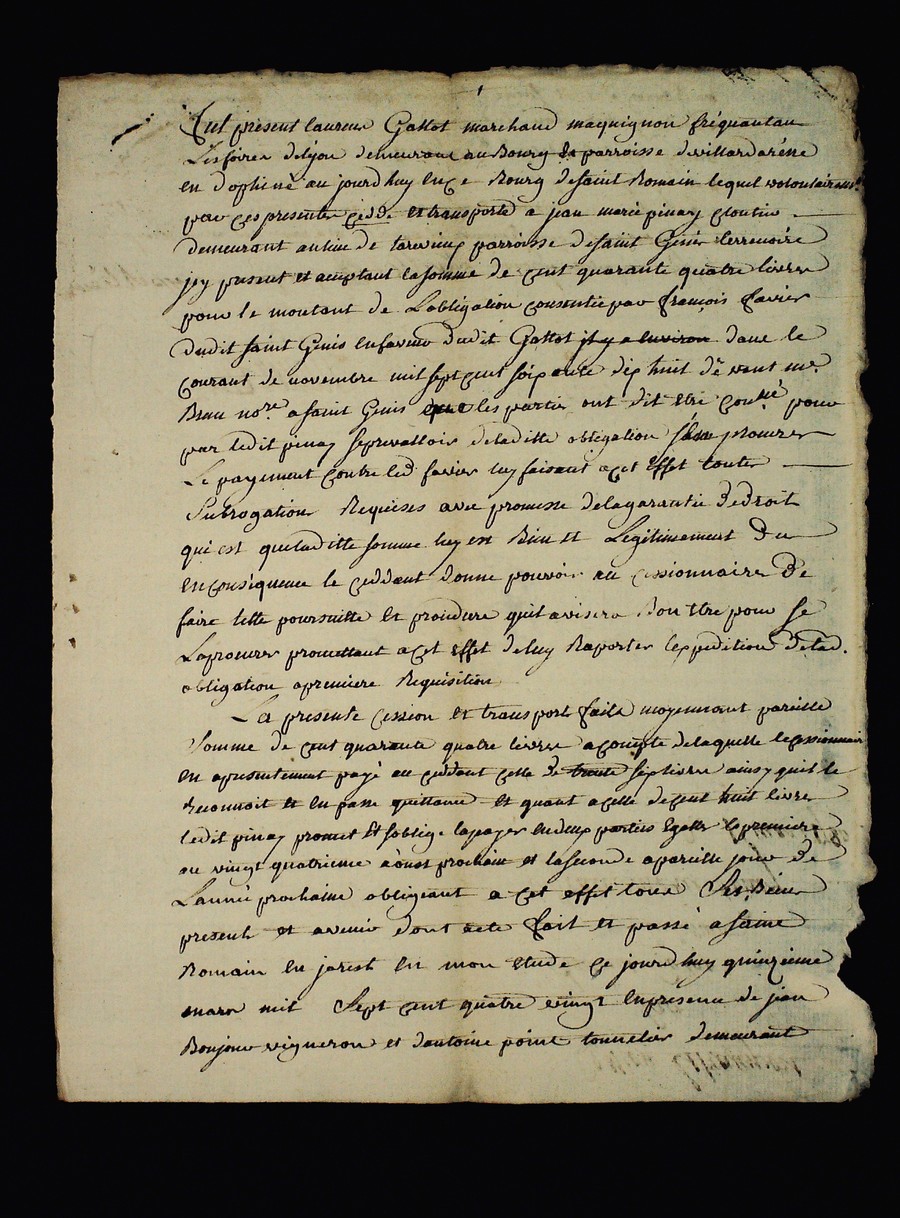 Fut présent laurens Gattot marchand maquignon fréquantau
Les foires delyon demeurant au Bourg et parroisse devillardarène
en dophiné au jourdhuy en ce Bourg desaint Romain lequel volontairemt
par ces presentes cedde et transporte a jean marie pinay cloutier
demeurant au lieu de parroisse desaint Genis terrenoire
jcy present et acceptant la somme de cent quarante quatre livres
pour le montant de Lobligation consentie par françois favier
dudit saint Genis enfaveur dudit Gattot il y a environ dans le
courant de novembre mil sept cent soixante dix huit de vant me.
nore. a saint Genis que les parties ont dit etre con.lé pour
par ledit pinay seprevalloir deladitte obligation procurer
Le payement contre led favier luy faisant a cet effet toutes
Subrogations Requises avec promesse delagarantie dedroit
qui est que laditte somme luy est Bien et Legitimement Due
en consequence le ceddant donne pouvoir au cessionnaire De
faire telle poursuitte et procedure quil avisera Bon etre pour se
Laprocurer promettant a cet effet deluy Raporter lexpedition delad.
obligation a premiere Requisition
La presente cession et transport faits moyennant pareille
Somme de cent quarante quatre livres a compte delaquelle le cessionnaire
en a presentement payé au ceddant celle de trente sept livres ainsy quil le
Reconnoit et en passe quittance et quant a celle decent huit livres
ledit pinay promet et soblige lapayer en deux parties Egalles la premiere
au vingt quatrieme aoust prochain et laseconde a pareille jour De
Lannée prochaine obligeant a cet effet tous Ses Biens
presents et avenir dont acte fait et passé a saint
Romain en jarest en mon etude ce jourdhuy quinzieme
mars mil Sept cent quatre vingt en presence de jean
Bonjour vigneron et dantoine point tonnelier demeurant